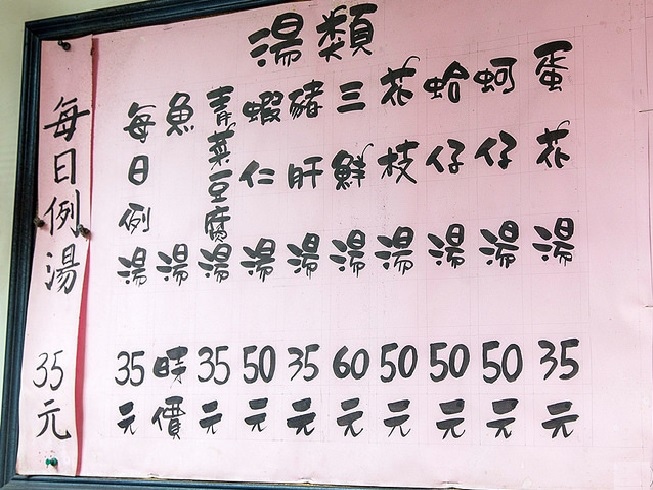 湯類
蛋花湯 35元
蚵仔湯 50元
蛤仔湯 50元
花枝湯 50元
三鮮湯 60元
豬肝湯 35元
蝦仁湯 50元
青菜豆腐湯 35元
魚湯 時價
每日例湯 35元
每日例湯 35元